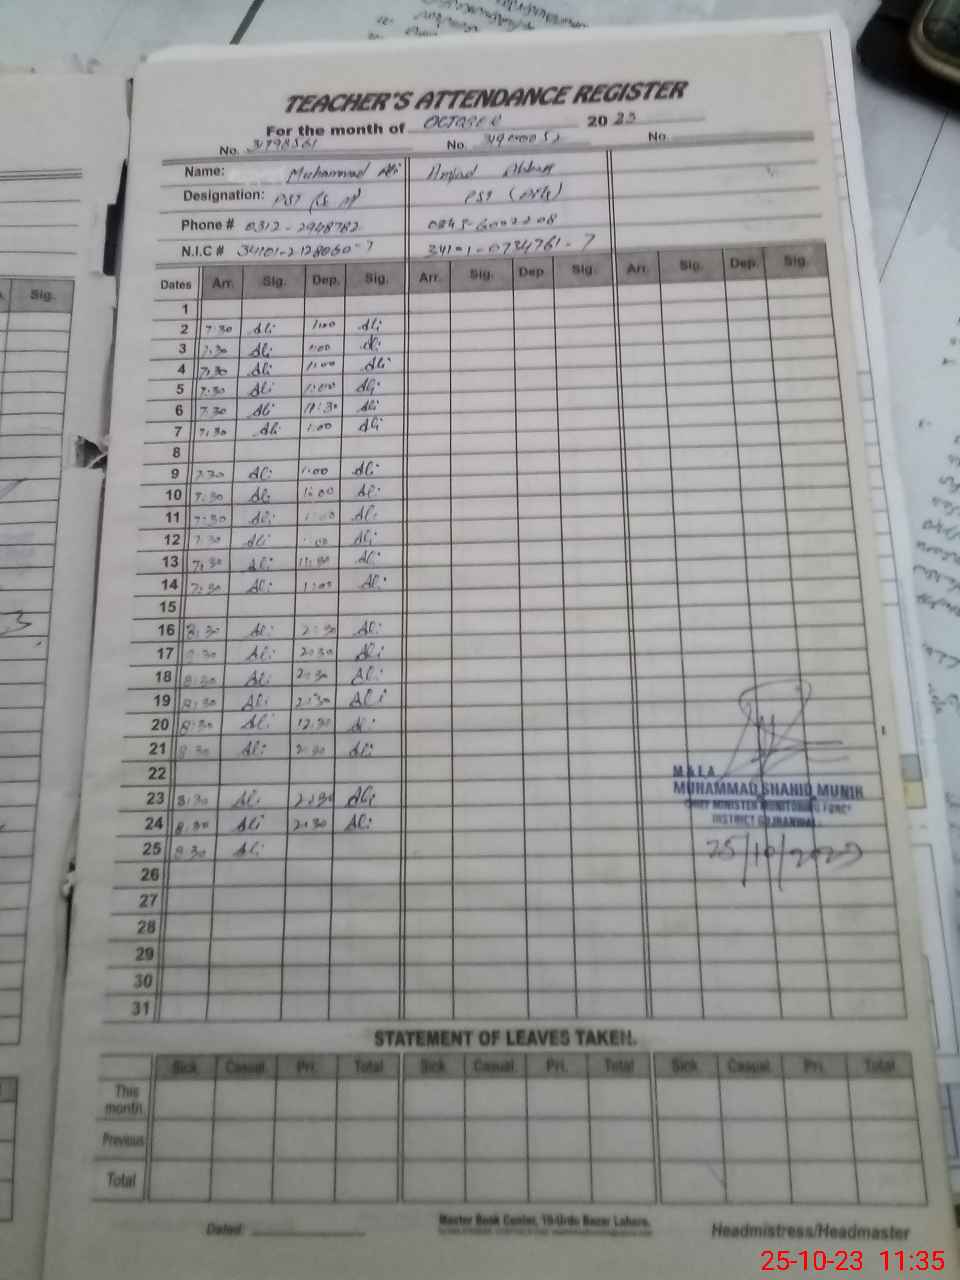 TEACHER'S ATTENDANCE REGISTER
For the month of OCTOBER 2023
No. 31798561 No. No.
Name: Muhammad Ali Amjad Abbas
Designation: PST PST
Phone # 0312-2948782 0345-6002208
N.I.C # 34101-2128060-7 34101-0734761-7
Dates Arr. Sig. Dep. Sig. Arr. Sig. Dep Sig. Arr. Sig. Dep. Sig.
Sig.
1
2 7:30 Ali 1:00 Ali
3 7:30 Ali 1:00 Ali
4 7:30 Ali 1:00 Ali
5 7:30 Ali 1:00 Ali
6 7:30 Ali 11:30 Ali
7 7:30 Ali 1:00 Ali
8
9 7:30 Ali 1:00 Ali
10 7:30 Ali 1:00 Ali
11 7:30 Ali 1:00 Ali
12 7:30 Ali 1:00 Ali
13 7:30 Ali 11:30 Ali
14 7:30 Ali 1:00 Ali
15
16 8:30 Ali 2:30 Ali
17 8:30 Ali 2:30 Ali
18 8:30 Ali 2:30 Ali
19 8:30 Ali 2:30 Ali
20 8:30 Ali 12:30 Ali
21 8:30 Ali 2:30 Ali
22
23 8:30 Ali 2:30 Ali
24 8:30 Ali 2:30 Ali
25 8:30 Ali
26
27
28
29
30
31
M.E.A
MUHAMMAD SHAHID MUNIR
CHIEF MINISTER MONITORING FORCE
DISTRICT GUJRANWALA
25/10/2023
STATEMENT OF LEAVES TAKEN.
Sick Casual Pri. Total Sick Casual Pri. Total Sick Casual Pri. Total
This month
Previous
Total
Dated:
Master Book Center, 19-Urdu Bazar Lahore.
Headmistress/Headmaster
25-10-23 11:35